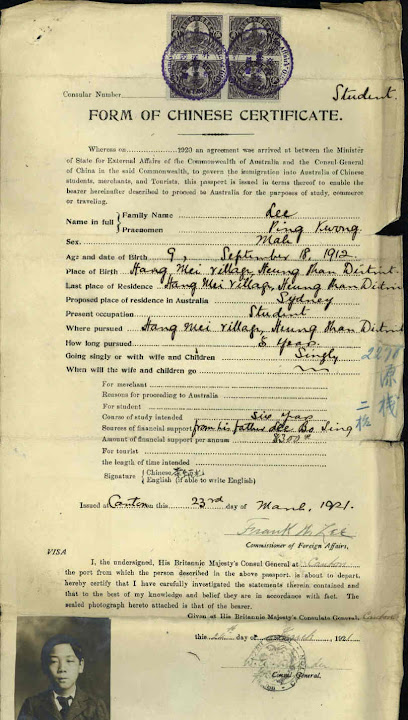 Consular Number
Student.
FORM OF CHINESE CERTIFICATE.
Whereas on 1920 an agreement was arrived at between the Minister
of State for External Affairs of the Commonwealth of Australia and the Consul-General
of China in the said Commonwealth, to govern the immigration into Australia of Chinese
students, merchants, and Tourists, this passport is issued in terms thereof to enable the
bearer hereinafter described to proceed to Australia for the purposes of study, commerce
or traveling.
Name in full
Family Name Lee
Praenomen Ping Kwong
Sex. Male
Age and date of Birth 9, September 18, 1912.
Place of Birth Hang Mei Village, Heung Shan District
Last place of Residence Hang Mei Village, Heung Shan District
Proposed place of residence in Australia Sydney
Present occupation Student
Where pursued Hang Mei Village, Heung Shan District
How long pursued Years
Going singly or with wife and Children Singly
When will the wife and children go
For merchant
Reasons for proceeding to Australia
For student
Course of study intended six years
Sources of financial support from his father Lee Bo Sing
Amount of financial support per annum $300
For tourist
the length of time intended
Signature
Chinese
English (if able to write English)
Issued at Canton on this 23rd day of March, 1921.
Commissioner of Foreign Affairs,
VISA
I, the undersigned, His Britannic Majesty's Consul General at Canton
the port from which the person described in the above passport is about to depart,
hereby certify that I have carefully investigated the statements therein contained and
that to the best of my knowledge and belief they are in accordance with fact. The
sealed photograph hereto attached is that of the bearer.
Given at His Britannic Majesty's Consulate General, Canton
this day of 1921
Consul General.